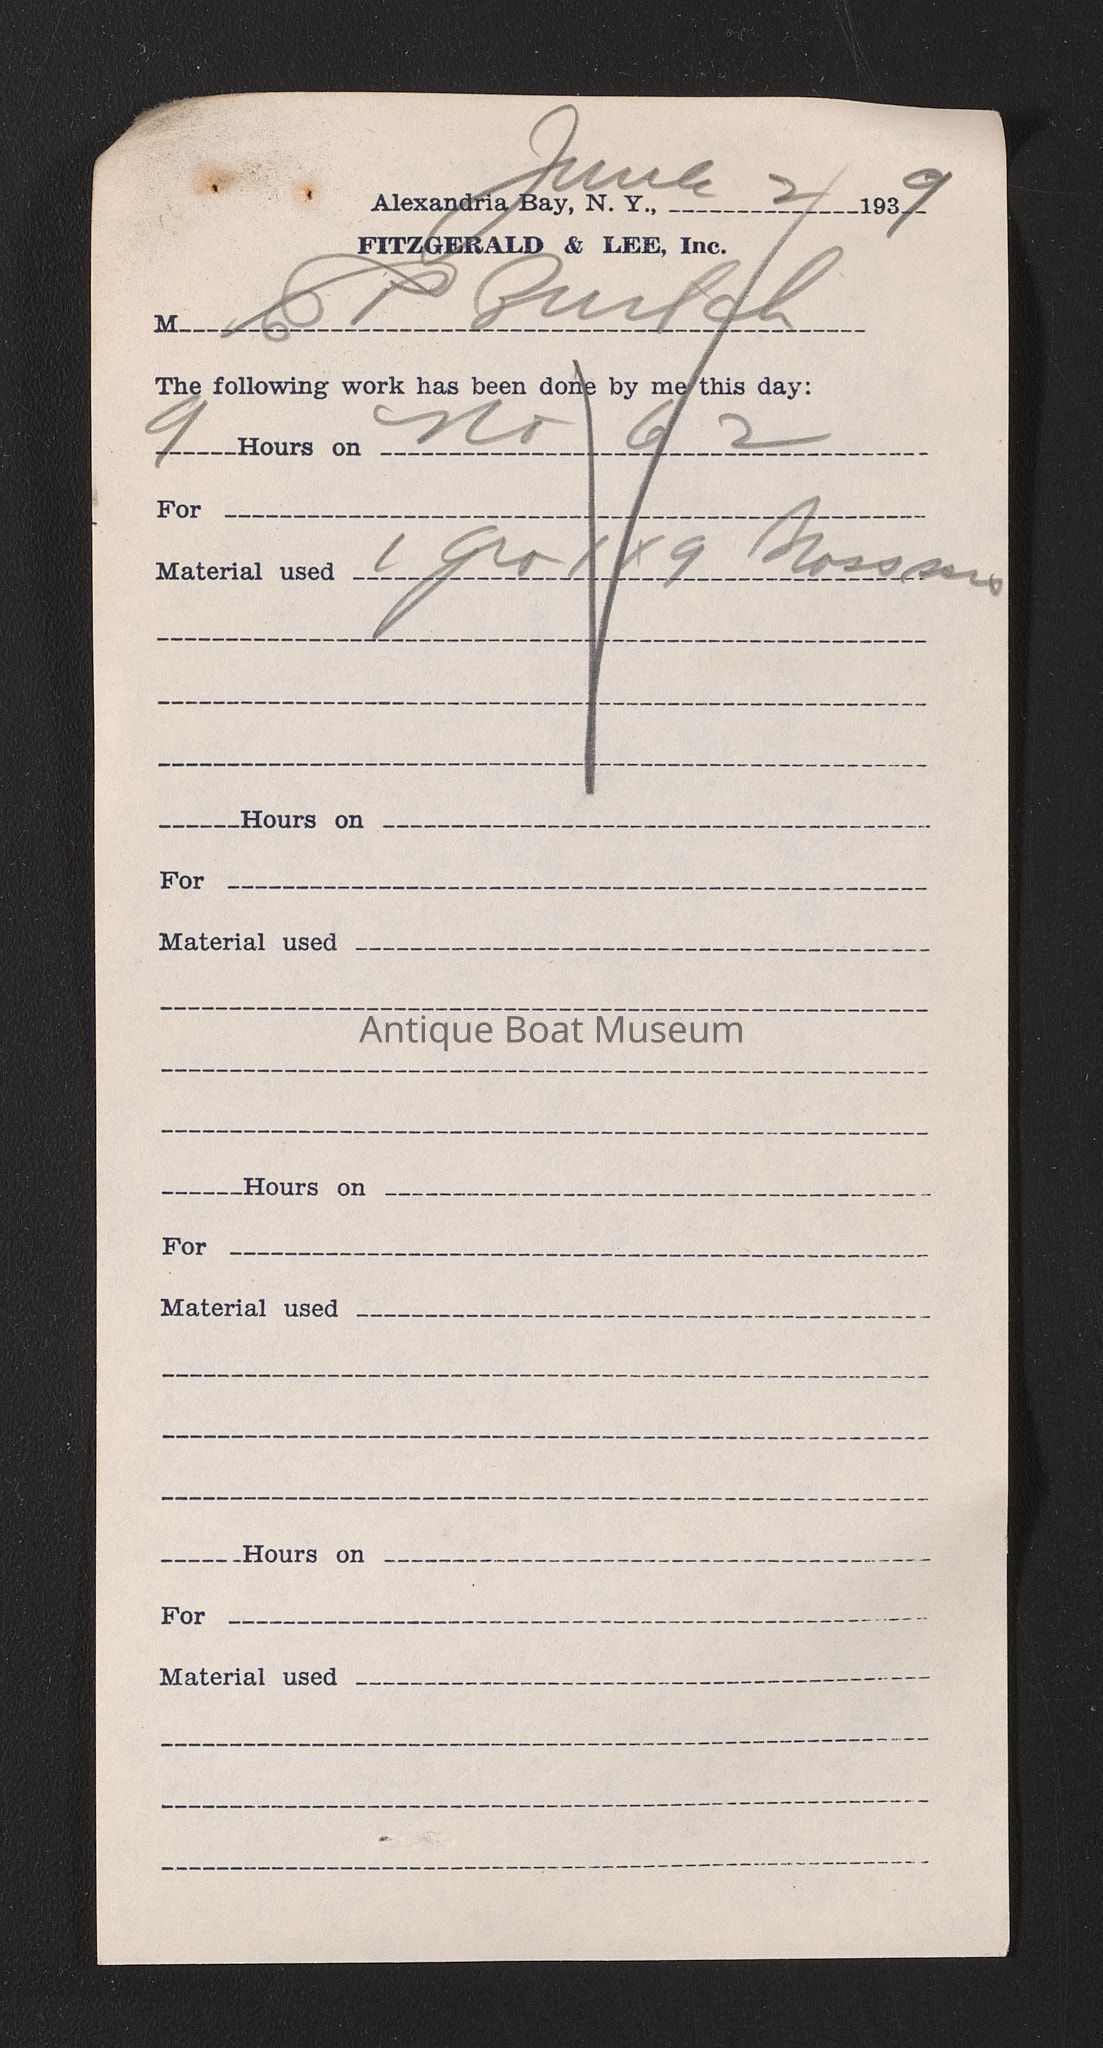 June 2
Alexandria Bay, N. Y., 1939
FITZGERALD & LEE, Inc.
M P Burtch
The following work has been done by me this day:
9 Hours on No 62
For
Material used 1 gro 1 x 9
Hours on
For
Material used
Antique Boat Museum
Hours on
For
Material used
Hours on
For
Material used